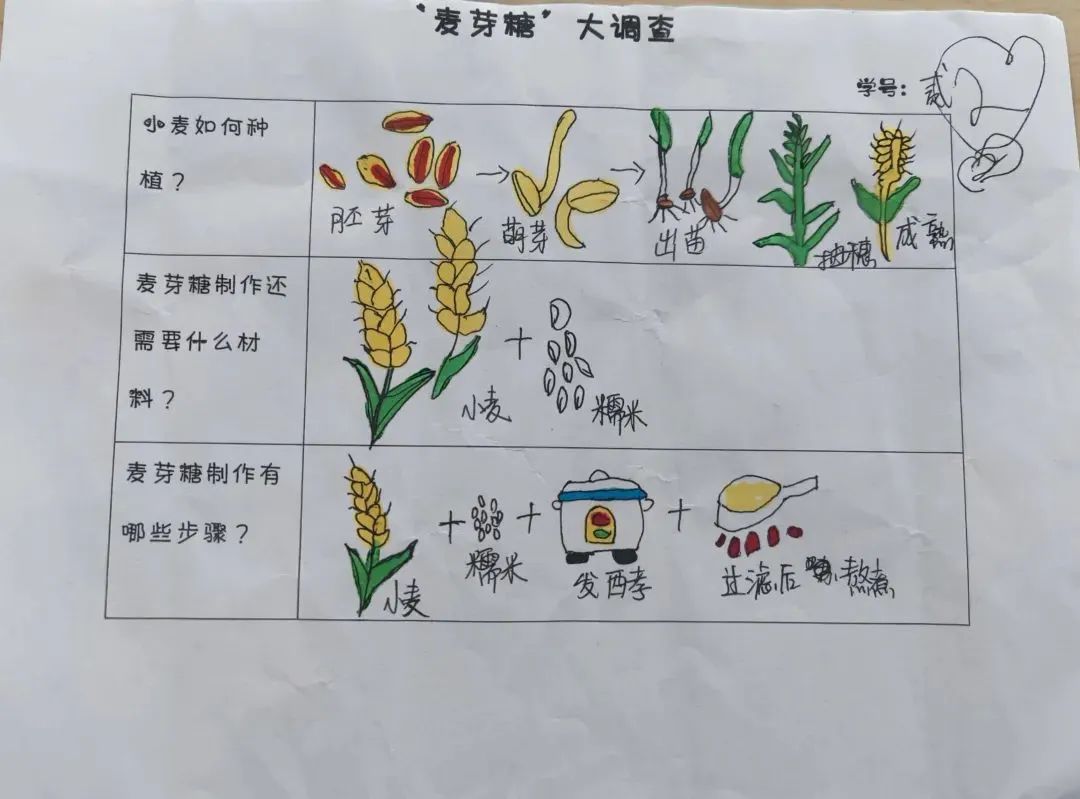 “麦芽糖”大调查
学号：
小麦如何种
植？
胚芽
萌芽
出苗
抽穗
成熟
麦芽糖制作还
需要什么材
料？
小麦
+
糯米
麦芽糖制作有
哪些步骤？
小麦
+
糯米
+
发酵
+
过滤后熬煮